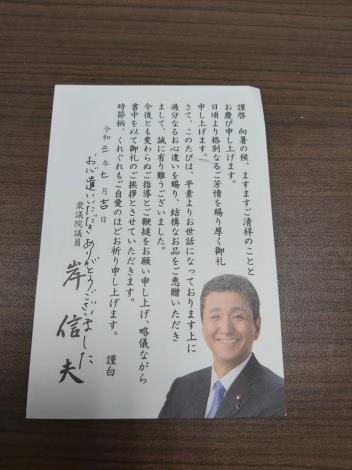 謹啓　向暑の候、ますますご清祥のことと
お慶び申し上げます。
日頃より格別なるご芳情を賜り厚く御礼
申し上げます。
さて、このたびは、平素よりお世話になっております上に
過分なるお心遣いを賜り、結構なお品をご恵贈いただき
まして、誠に有り難うございました。
今後とも変わらぬご指導とご鞭撻をお願い申し上げ、略儀ながら
書中を以て御礼のご挨拶とさせていただきます。
時節柄、くれぐれもご自愛のほどお祈り申し上げます。
謹白
令和三年七月吉日
お心遣いいただきありがとうございました
衆議院議員
岸信夫